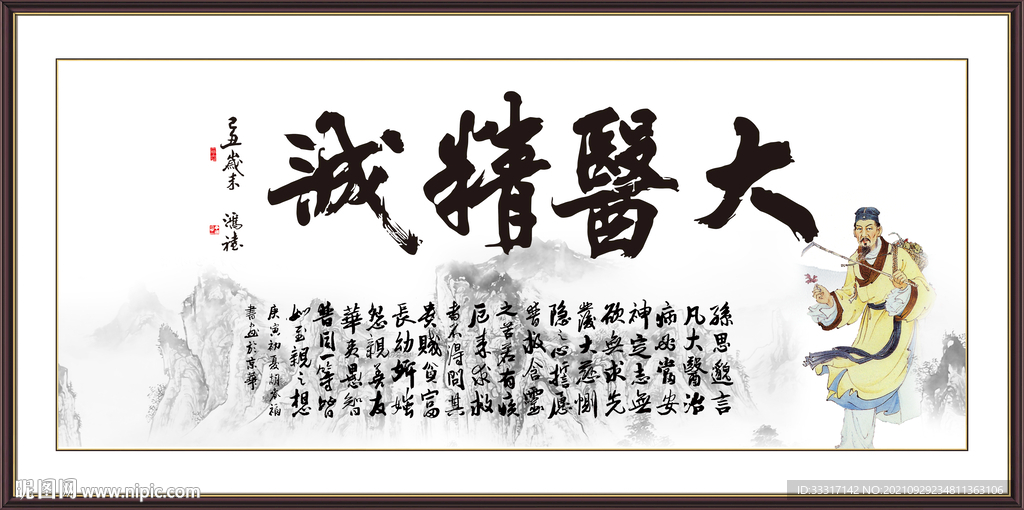 大醫精誠
己丑歲末
孫思邈言
凡大醫治
病必當安
神定志無
欲無求先
發大慈惻
隐之心誓愿
普救含靈
之苦若有疾
厄来求救
者不得問其
貴賤貧富
長幼妍媸
怨親善友
華夷愚智
普同一等皆
如至親之想
庚寅初夏
書於京華
昵图网 www.nipic.com
ID:33317142 NO:20210929234811363106